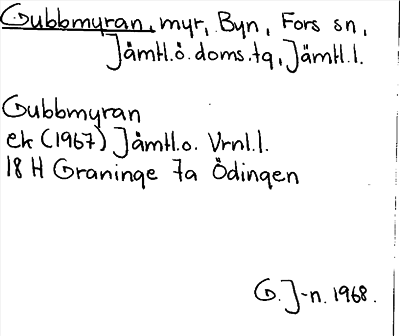 Gubbmyran, myr, Byn, Fors sn,
Jämtl.ö.doms.tg, Jämtl.l.
Gubbmyran
ek (1967) Jämtl.o. Vrnl.l.
18 H Graninge 7a Ödingen
G. J-n. 1968.